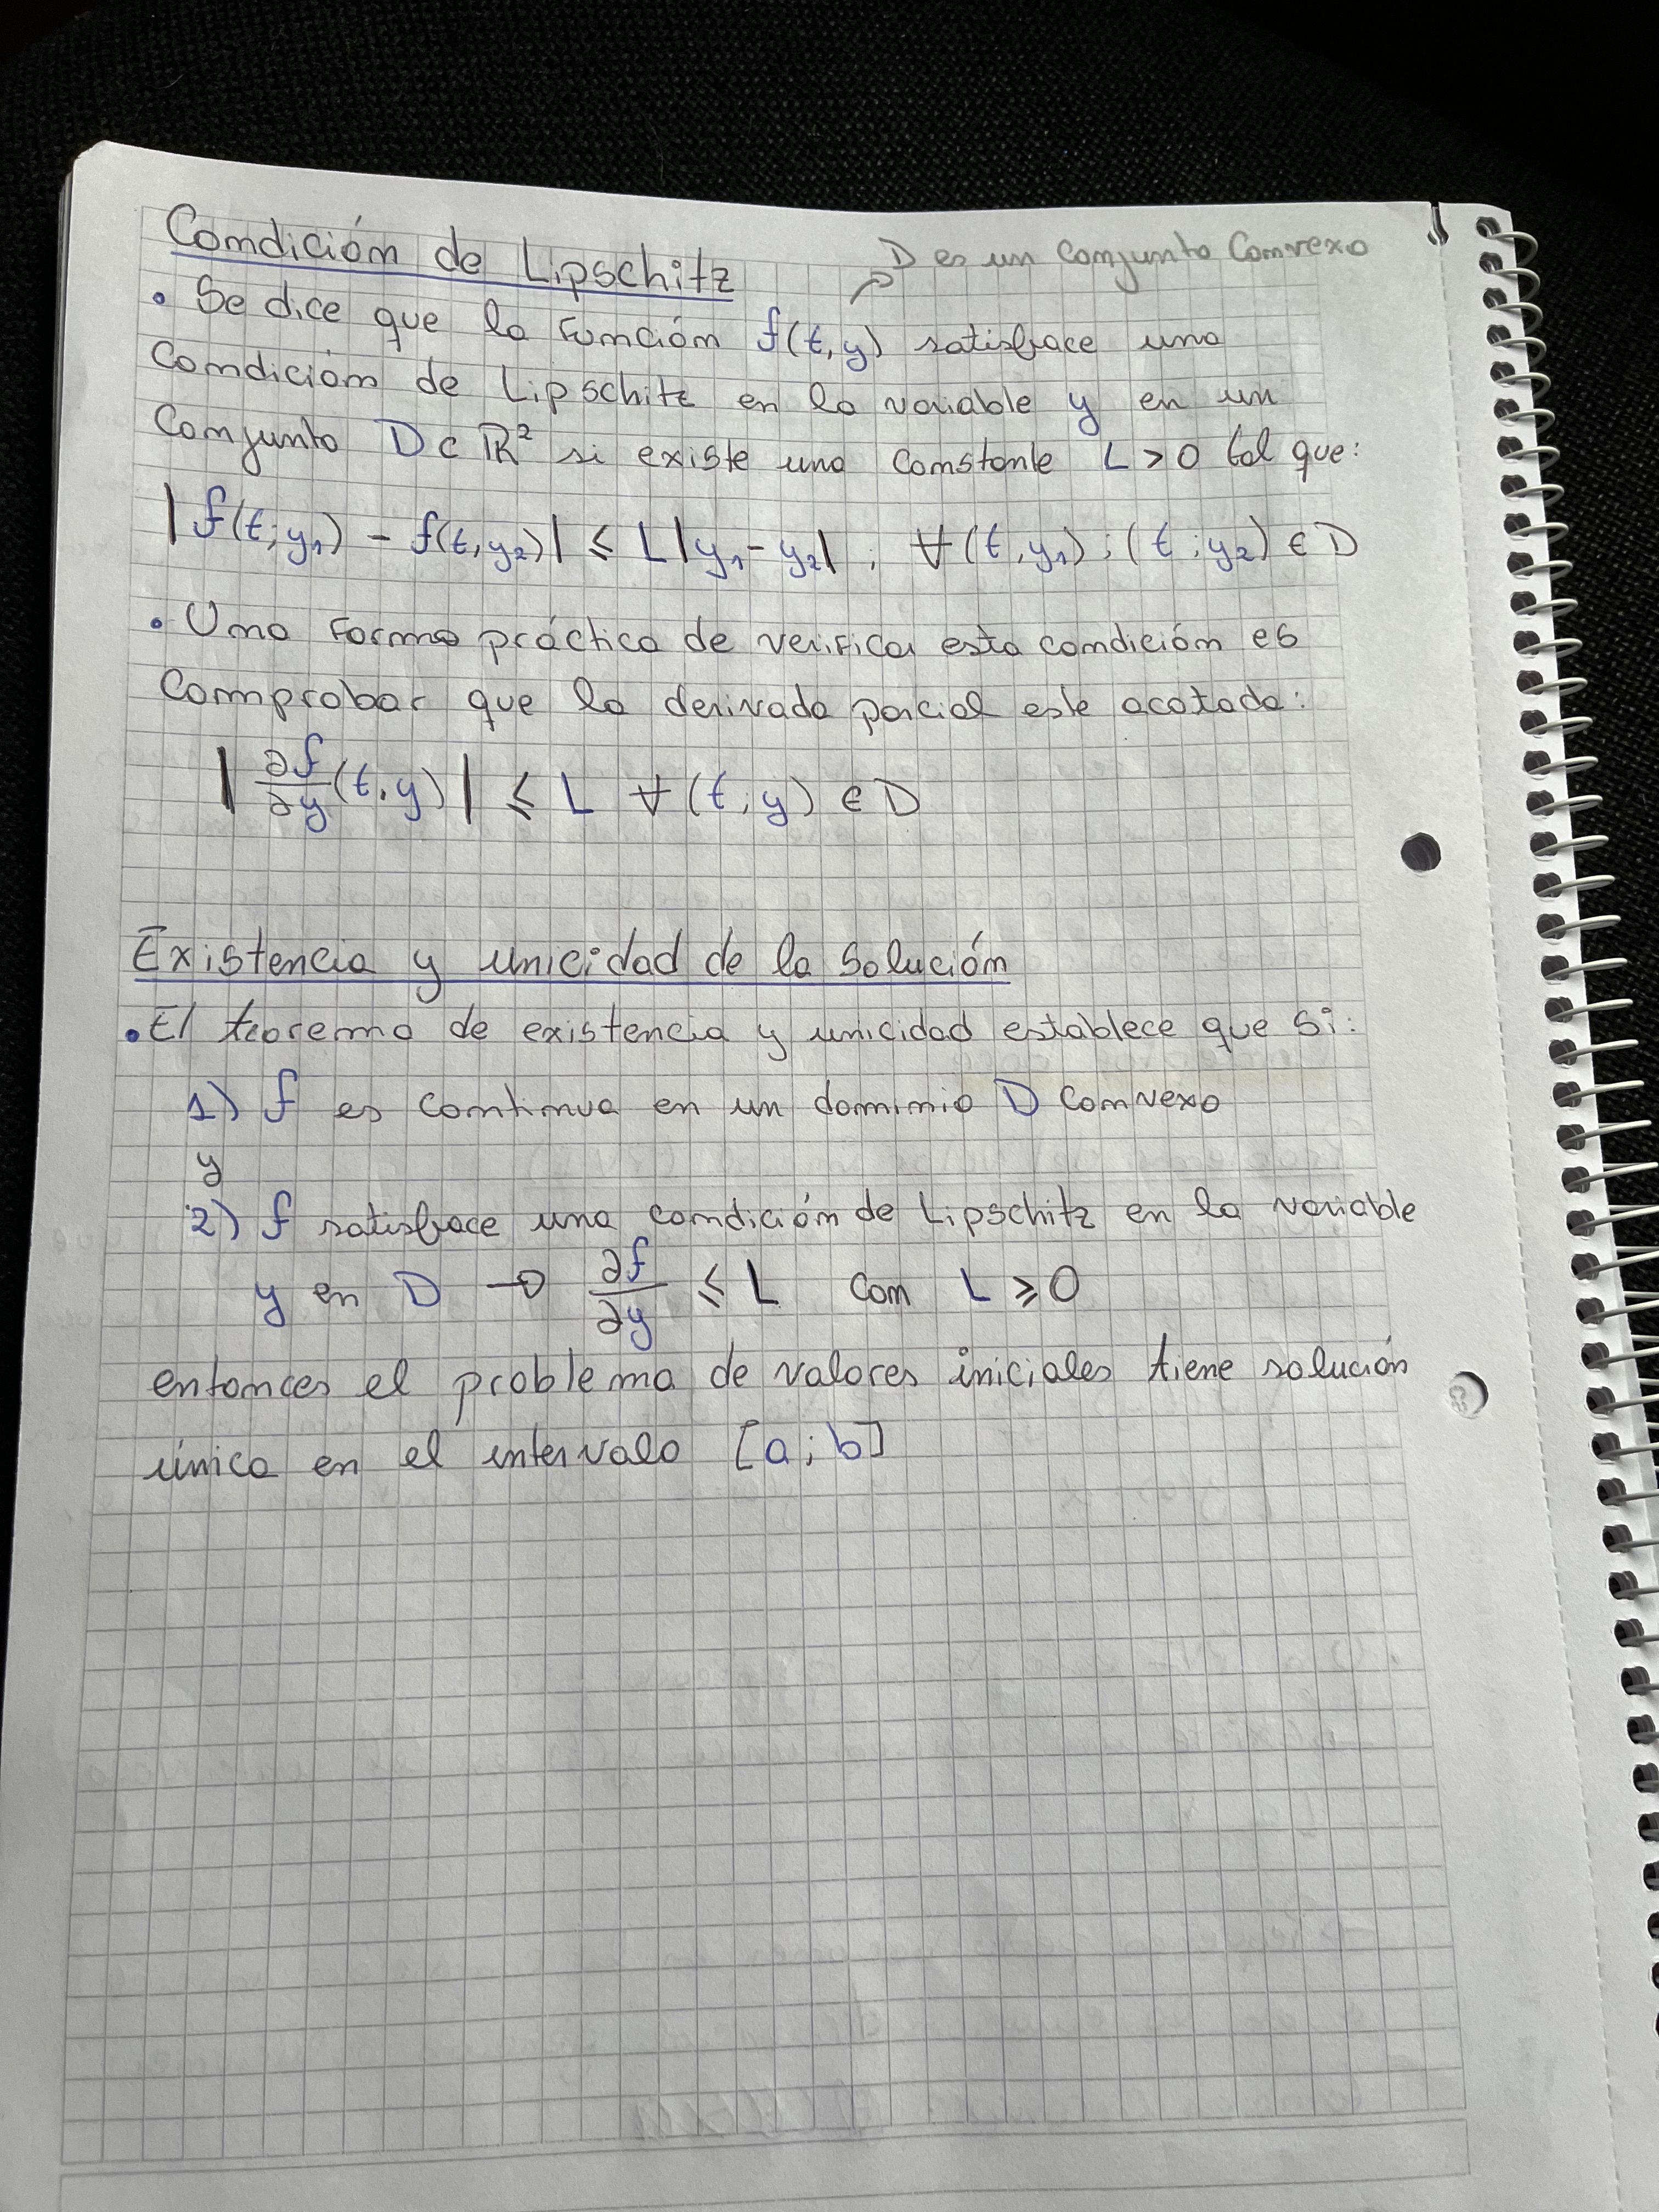 Condición de Lipschitz
D es un conjunto convexo
• Se dice que la función f(t,y) satisface una
condición de Lipschitz en la variable y en un
conjunto D ⊂ ℝ² si existe una constante L > 0 tal que:
|f(t;y₁) - f(t,y₂)| ≤ L|y₁ - y₂| , ∀(t,y₁) ; (t;y₂) ∈ D
• Una forma práctica de verificar esta condición es
comprobar que la derivada parcial este acotada:
|∂f/∂y (t,y)| ≤ L ∀(t;y) ∈ D
Existencia y unicidad de la solución
• El teorema de existencia y unicidad establece que si:
1) f es continua en un dominio D convexo
y
2) f satisface una condición de Lipschitz en la variable
y en D → ∂f/∂y ≤ L con L ≥ 0
entonces el problema de valores iniciales tiene solución
única en el intervalo [a;b]